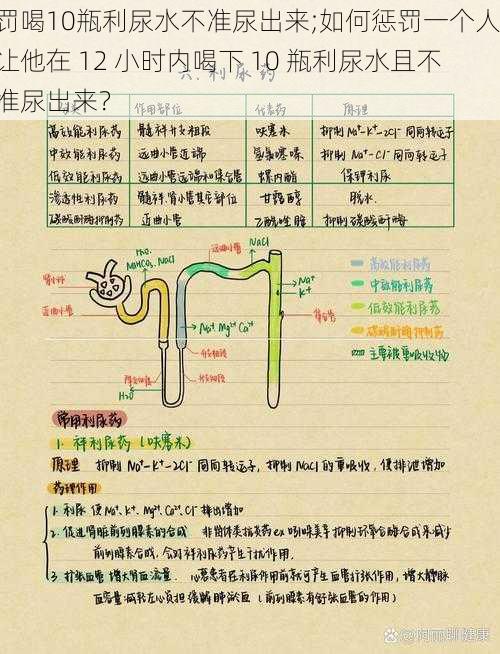 罚喝10瓶利尿水不准尿出来;如何惩罚一个人
让他在 12 小时内喝下 10 瓶利尿水且不
准尿出来?
六、利尿药
分类 作用部位 代表药 原理
高效能利尿药 髓袢升支粗段 呋塞米 抑制 Na⁺-K⁺-2Cl⁻同向转运子
中效能利尿药 远曲小管近端 氢氯噻嗪 抑制 Na⁺-Cl⁻同向转运子
低效能利尿药 远曲小管远端和集合管 螺内酯 保钾利尿
渗透性利尿药 髓袢.肾小管其它部位 甘露醇 脱水.
碳酸酐酶抑制药 近曲小管 乙酰唑胺 抑制碳酸酐酶
H₂O.
NaHCO₃.NaCl
远曲小管
NaCl
肾小球
近曲小管
Na⁺
K⁺
集合管
Na⁺ Mg²⁺ Ca²⁺
H₂O
高效能利尿药
中效能利尿药
低效能利尿药
碳酸酐酶抑制药
主要被重吸收物
常用利尿药
1. 袢利尿药 (呋塞米)
原理 抑制 Na⁺-K⁺-2Cl⁻ 同向转运子, 抑制 NaCl 的重吸收, 使排泄增加
药理作用
1. 利尿 使 Na⁺. K⁺. Mg²⁺. Ca²⁺. Cl⁻ 排出增加
2. 促进肾脏前列腺素的合成 非甾体类抗炎药 ex 吲哚美辛 抑制环氧合酶合成来减少
前列腺素合成, 会对袢利尿药产生干扰作用.
3. 扩张血管 增大肾血流量. 心衰患者在利尿作用前就可产生血管扩张作用, 增大静脉
血容量 减轻左心负担 缓解肺淤血 (前列腺素有舒张血管的作用)
@阿丽聊健康